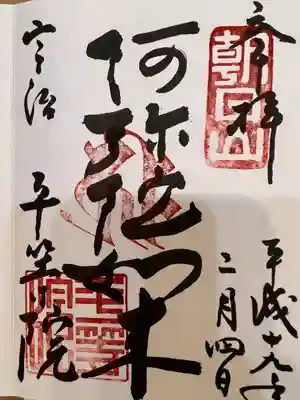 奉拝
朝日山
平成十九年
二月四日
阿弥陀如来
宇治 平等院